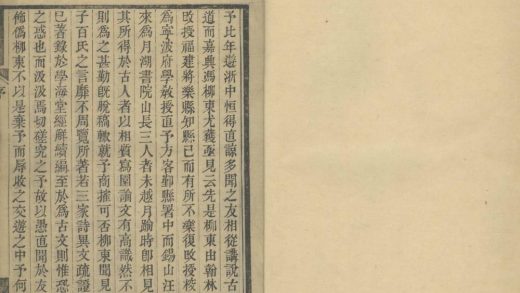 予比年遊浙中恒得直諒多聞之友相從講說古
道而嘉興馮柳東尤獲亟見云先是柳東由翰林
改授福建將樂縣知縣已而有所不樂復改授校
為寧波府學教授直予方客鄞縣署中而錫山汪
來為月湖書院山長三人者未越月踰時卽相見
其所得於古人者以相質寫圖論文有高識然不
則為之甚勤旣脫稿輒就予商搉可否柳東聞見
子百氏之言靡不周覽所著若三家詩異文疏證
已著錄於學海堂經解續編至於為古文則惟恐
之惑也而汲汲焉切磋究之予故以愚直聞於友
怖僞柳東不以是棄予而辱收之交遊之中予何
序